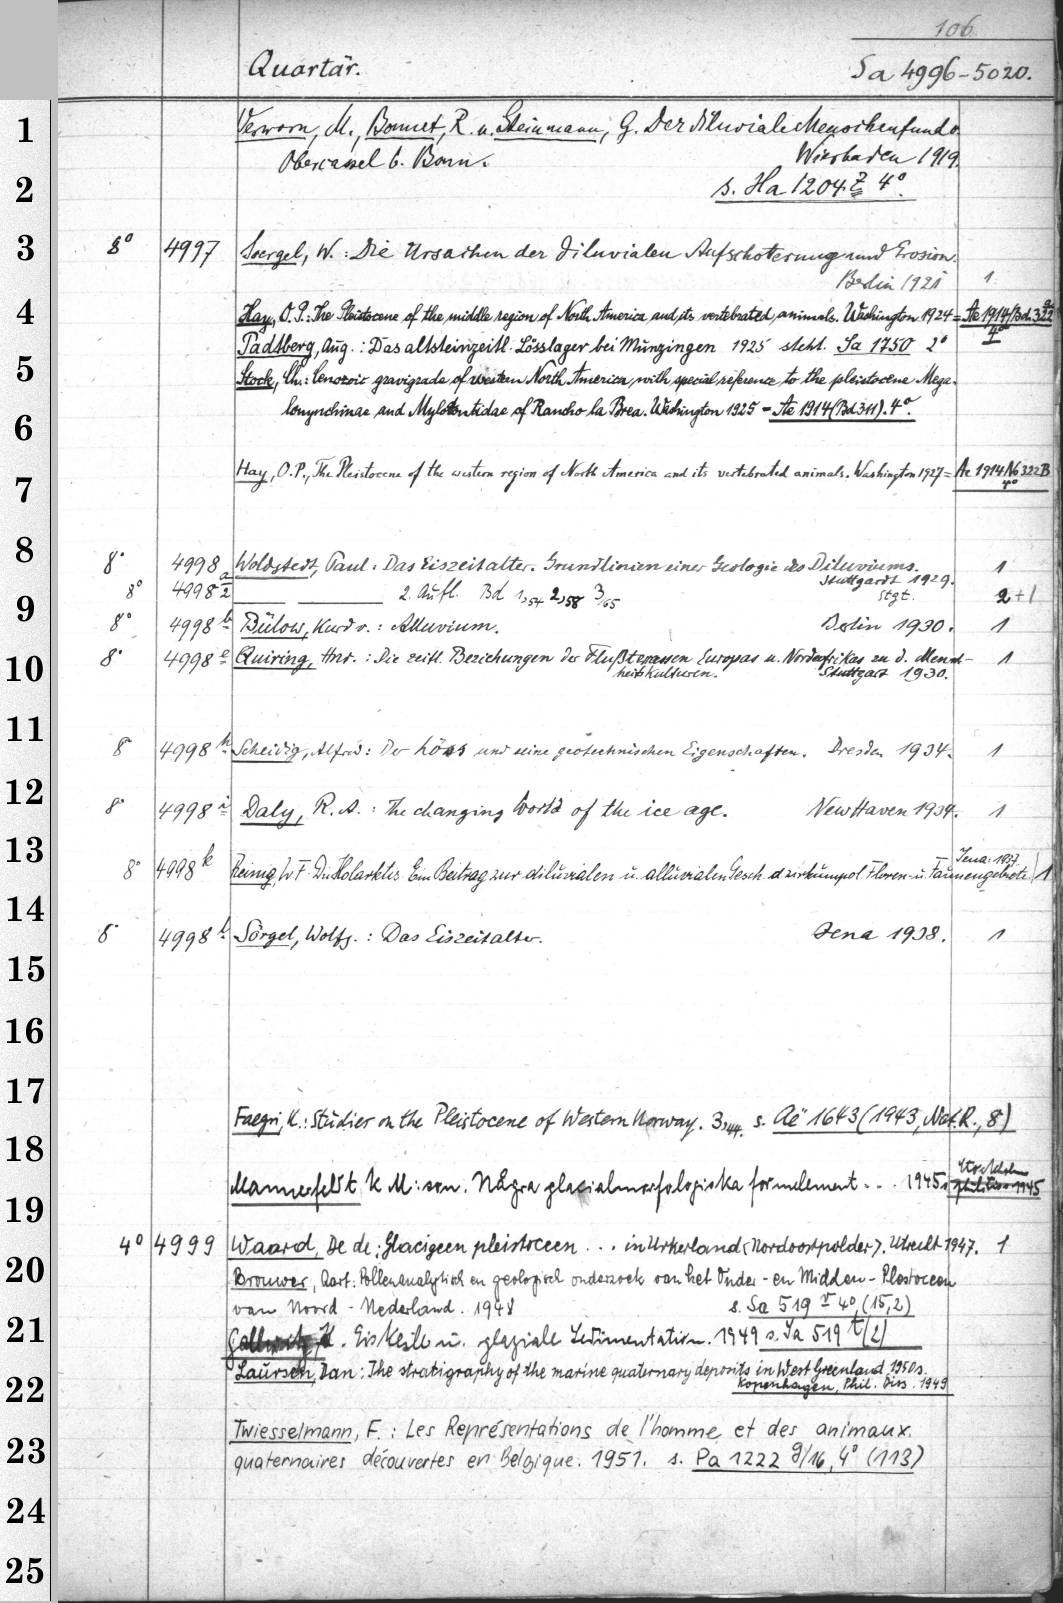 106
Quartär. Sa 4996-5020.
1 Verworn, M., Bonnet, R. u. Steinmann, G. Der diluviale Menschenfund v.
Obercassel b. Bonn. Wiesbaden 1919.
2 s. Ha 1204 Z 4°.
3 8° 4997 Soergel, W.: Die Ursachen der diluvialen Aufschotterung und Erosion.
Berlin 1921 1
4 Hay, O.P.: The Pleistocene of the middle region of North America and its vertebrated animals. Washington 1924 = Ae 1914 (Bd. 322 a
Padtberg, Aug.: Das altsteinzeitl. Lösslager bei Munzingen 1925 steht. Sa 1750 2° 4°
5 Stock, Ch.: Cenozoic gravigrade of western North America with special reference to the pleistocene Mega-
6 lonynchinae and Mylodontidae of Rancho la Brea. Washington 1925 = Ae 1914 (Bd 311). 4°.
7 Hay, O.P., The Pleistocene of the western region of North America and its vertebrated animals. Washington 1927 = Ae 1914 No 322 B
4°
8 8° 4998 Woldstedt, Paul: Das Eiszeitalter. Grundlinien einer Geologie des Diluviums. 1
Stuttgardt 1929.
8° 4998 a/2 2. Aufl. Bd 1,54 2,58 3/65 Stgt. 2+1
9 8° 4998 b Bülow, Kurd v.: Alluvium. Berlin 1930. 1
10 8° 4998 e Quiring, Hnr.: Die zeitl. Beziehungen der Flußterassen Europas u. Nordafrikas zu d. Mensch- 1
heitskulturen. Stuttgart 1930.
11 8° 4998 h Scheidig, Alfred: Der Löss und seine geotechnischen Eigenschaften. Dresden 1934. 1
12 8° 4998 i Daly, R. A.: The changing World of the ice age. New Haven 1934. 1
13 Jena: 1937
8° 4998 k Reinig, W F. Die Holarktis Ein Beitrag zur diluvialen u. alluvialen Gesch. d zirkumpol Floren- u. Faunengebiete 1
14 8° 4998 l Sörgel, Wolfg.: Das Eiszeitalter. Jena 1938. 1
15
16
17
Faegri, K.: Studier on the Pleistocene of Western Norway. 3,44. s. Aë 1643 (1943, Nat. R., 8)
18 Stockholm
Mannerfelt K M:son. Några glacialmorfologiska formelement ... 1945 s. 1945
19
4° 4999 Waard, De de: Glacigeen pleistoceen ... in Urkerland (Noordoostpolder). Utrecht 1947. 1
20 Brouwer, Aart: Pollenanalytisch en geologisch onderzoek van het Onder- en Midden-Pleistoceen
van Noord-Nederland. 1948 s. Sa 519 r 4°, (15,2)
21 Gallwitz, H. Eiskeile u. glaziale Sedimentation. 1949 s. Sa 519 t (2)
Laursen, Dan: The stratigraphy of the marine quaternary deposits in West Greenland. 1950 s.
22 Kopenhagen, Phil. Diss. 1949
Twiesselmann, F.: Les Représentations de l'homme et des animaux
23 quaternaires découvertes en Belgique. 1951. s. Pa 1222 g/16, 4° (113)
24
25